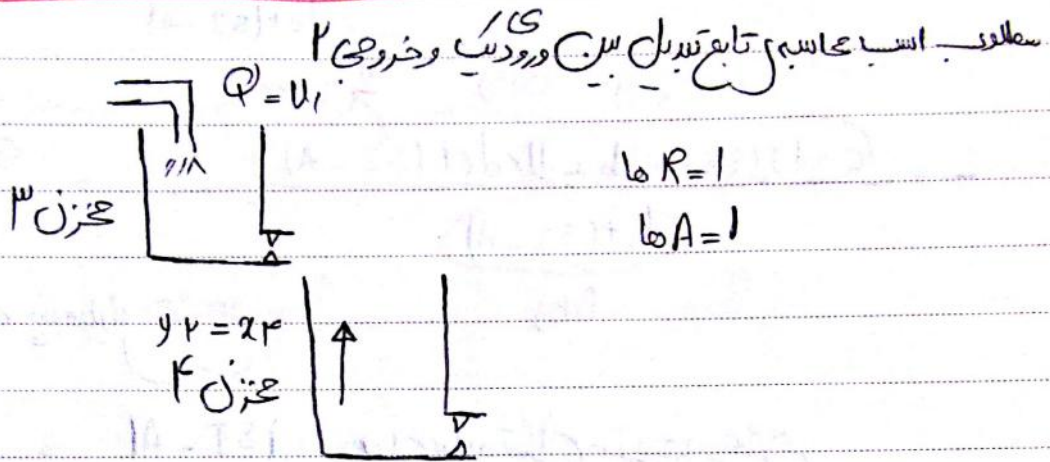 مطلوب است محاسبه ی تابع تبدیل بین ورودی یک و خروجی ۲
Q = u₁
مخزن ۳
R = 1 ها
A = 1 ها
y۲ = x۴
مخزن ۴